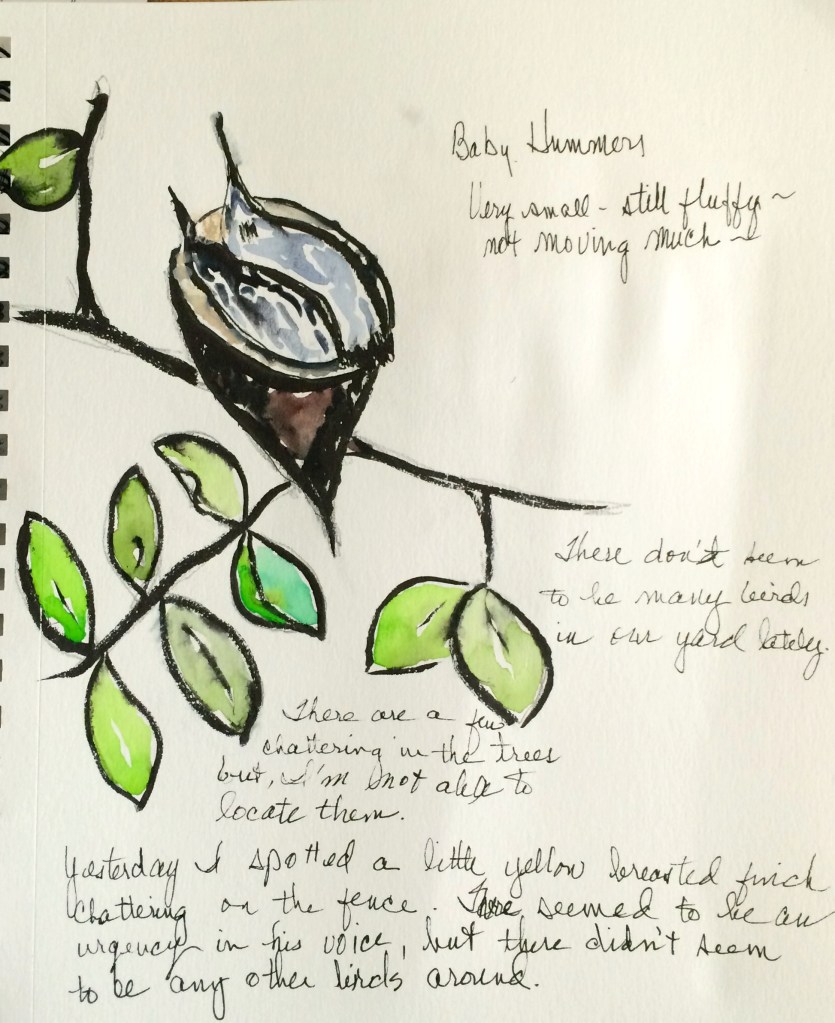 Baby Hummers
Very small - still fluffy ~
not moving much ~
There don't seem
to be many birds
in our yard lately.
There are a few
chattering in the trees
but, I'm not able to
locate them.
Yesterday I spotted a little yellow breasted finch
chattering on the fence. There seemed to be an
urgency in his voice, but there didn't seem
to be any other birds around.